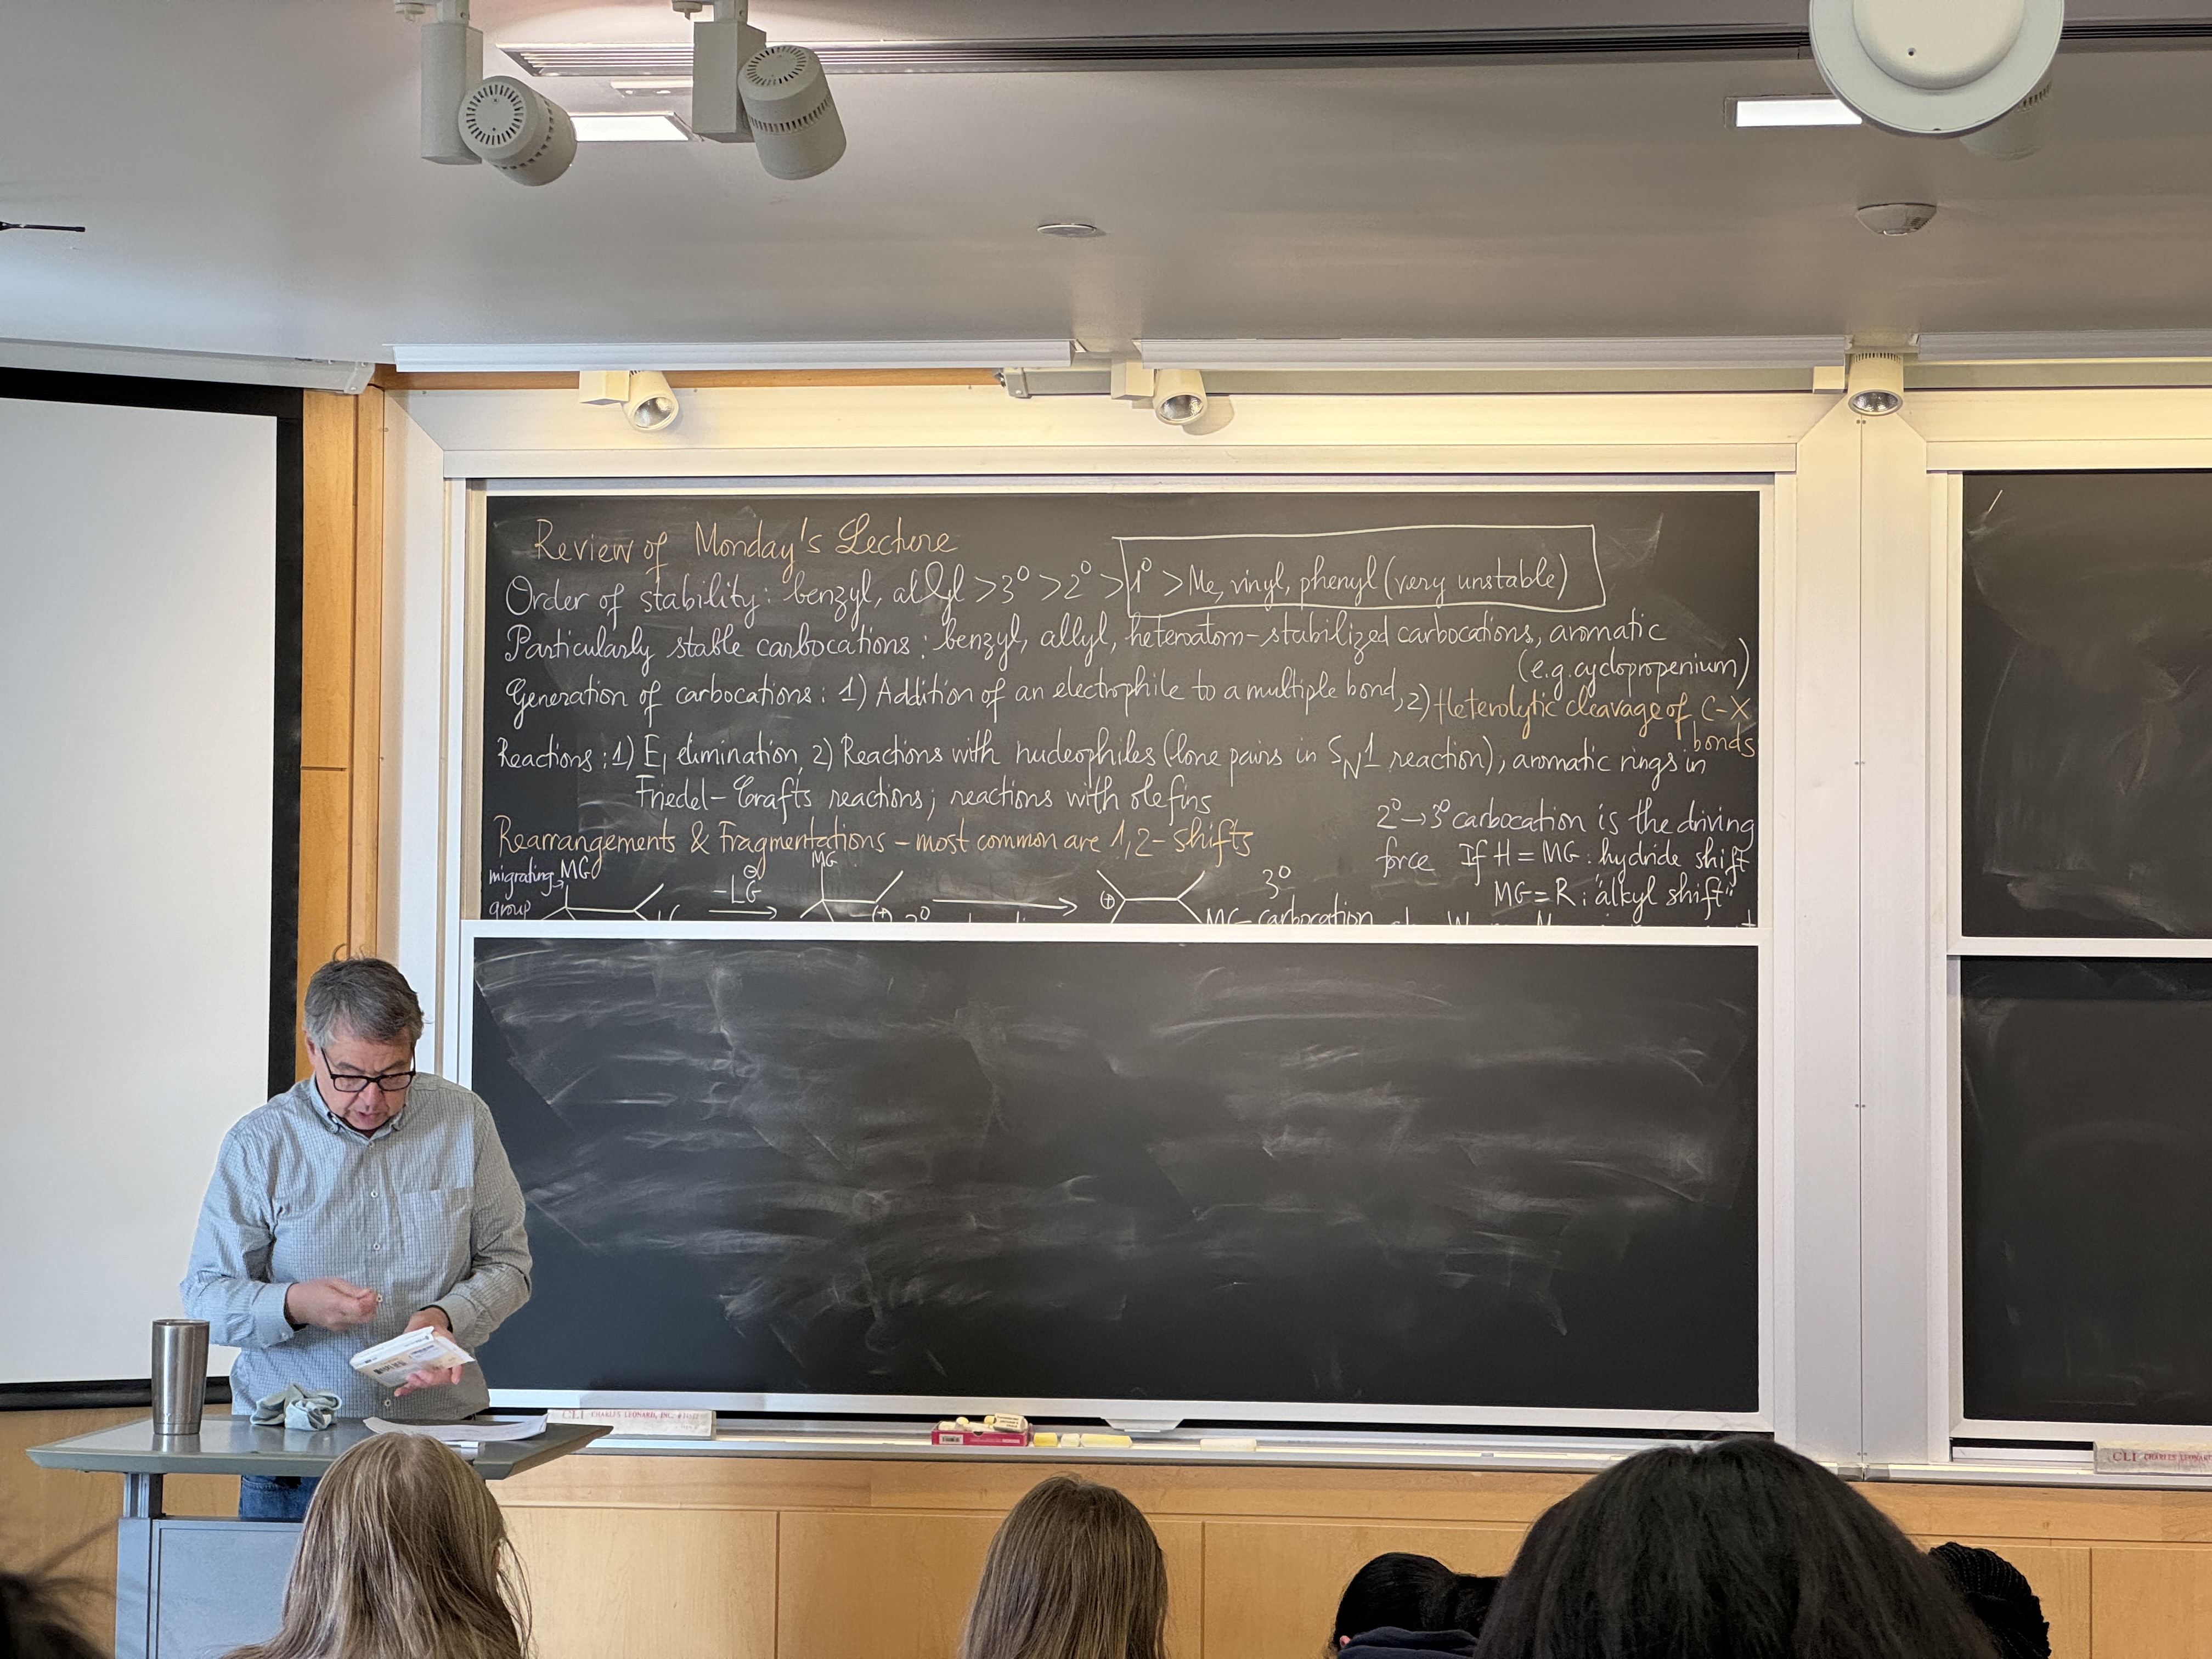 Review of Monday's Lecture
Order of stability: benzyl, allyl > 3° > 2° > 1° > Me, vinyl, phenyl (very unstable)
Particularly stable carbocations: benzyl, allyl, heteroatom-stabilized carbocations, aromatic
(e.g. cyclopropenium)
Generation of carbocations: 1) Addition of an electrophile to a multiple bond, 2) Heterolytic cleavage of C-X
bonds
Reactions: 1) E1 elimination, 2) Reactions with nucleophiles (lone pairs in SN1 reaction), aromatic rings in
Friedel-Crafts reactions; reactions with olefins
Rearrangements & Fragmentations - most common are 1,2-shifts
2° → 3° carbocation is the driving
force If H = MG: hydride shift
MG = R: "alkyl shift"
migrating → MG
group
-LG⊖
MG
⊕ 2°
⊕
3°
MG carbocation
CLI CHARLES LEONARD, INC.
CLI CHARLES LEONARD